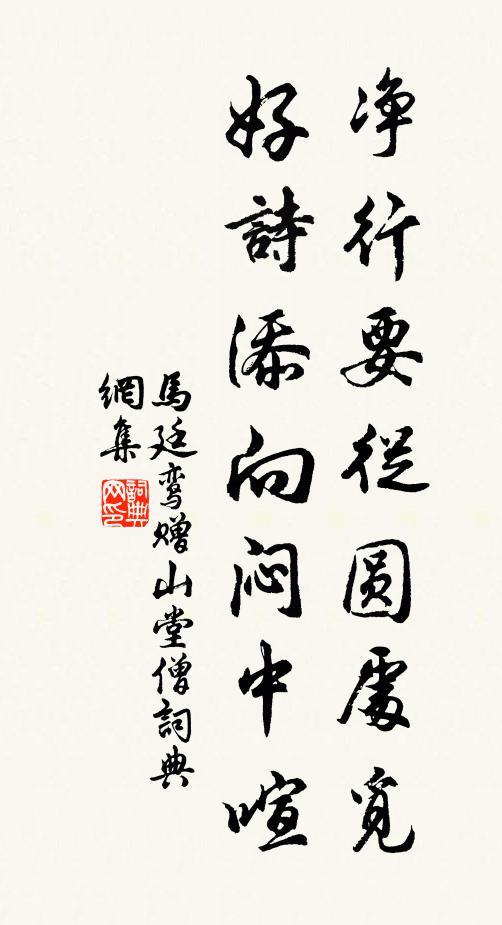 净行要從圆處覓
好詩添向闷中喧
馬廷鸾赠山堂僧詞典
網集
詞典
网印